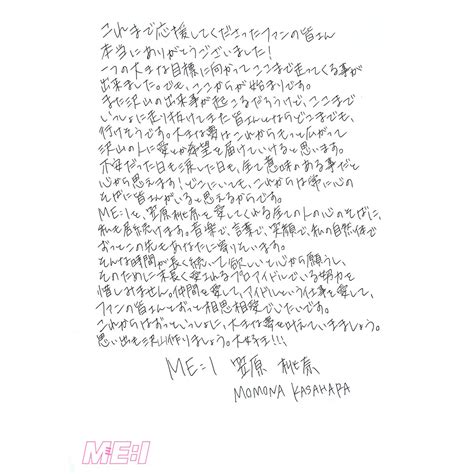 これまで応援してくださったファンの皆さん
本当にありがとうございました!
一つの大きな目標に向かってここまで走ってくる事が
出来ました。でも、ここからが始まりです。
また沢山の出来事が起こるだろうけど、ここまで
いっしょに走り抜けてきた皆さんとならどこまでも、
行けそうです。大きな夢はこれからもっと広がって
沢山の人に愛とか希望を届けていけると思います。
不安だった日も涙した日も、全て意味のある事だと
心から思えます!どこにいても、これからは常に心の
そばに皆さんがいると思えます。
ME:Iを、笠原桃奈を愛してくれる全ての人の心のそばに、
私も居続けます。音楽で、言葉で、笑顔で、私の自然体で
ずっとこの先もあなたに寄りそいます。
そんな時間が長く続いて欲しいと心から願うし、
そのために末長く愛されるプロアイドルでいる努力を
惜しみません。仲間を愛して、アイドルという仕事を愛して、
ファンの皆さんとずっと相思相愛でいたいです。
これからはずっといっしょに、大きな夢を叶えていきましょう。
思い出も沢山作りましょう。大好き!!!
ME:I 笠原 桃奈
MOMONA KASAHARA
ME:I